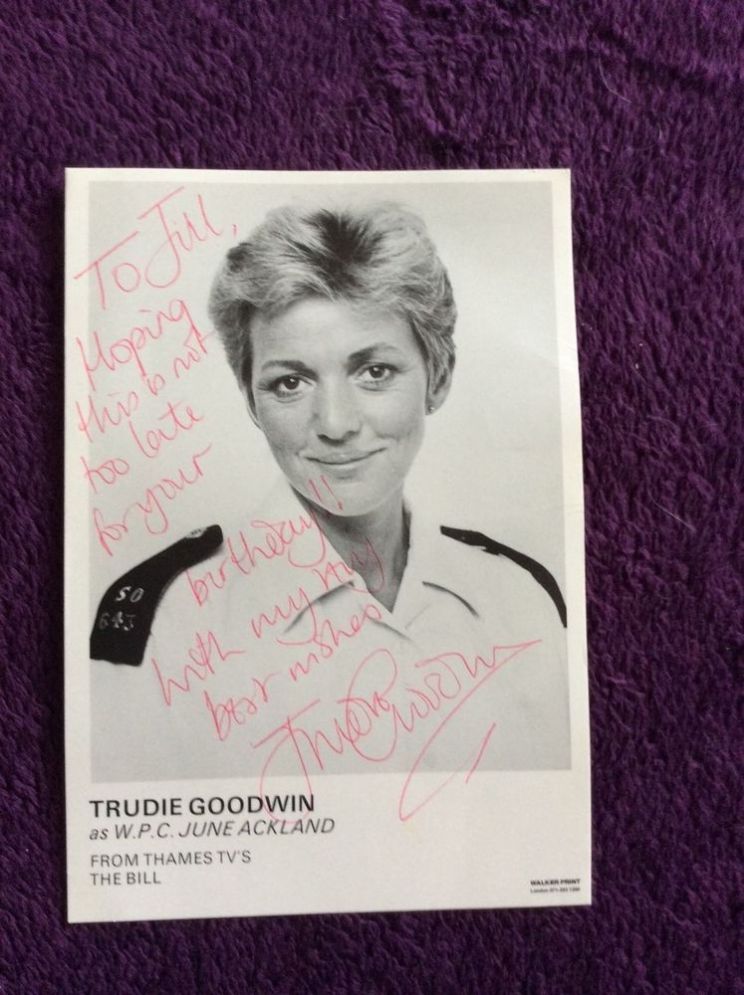 To Jill,
Hoping
this is not
too late
for your
birthday!!
With my very
best wishes
Trudie Goodwin
SO
643
TRUDIE GOODWIN
as W.P.C. JUNE ACKLAND
FROM THAMES TV'S
THE BILL
WALKER PRINT